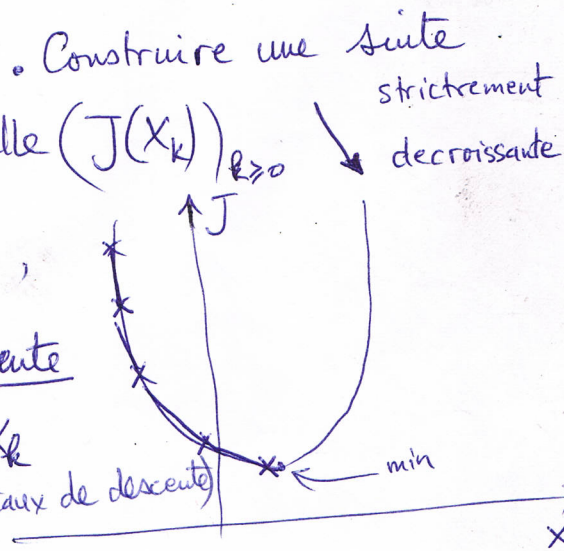 . Construire une suite
strictrement
lle (J(X_k))_{k≥0} ↘ decroissante
J
,
ente
k
min
aux de descente)
x